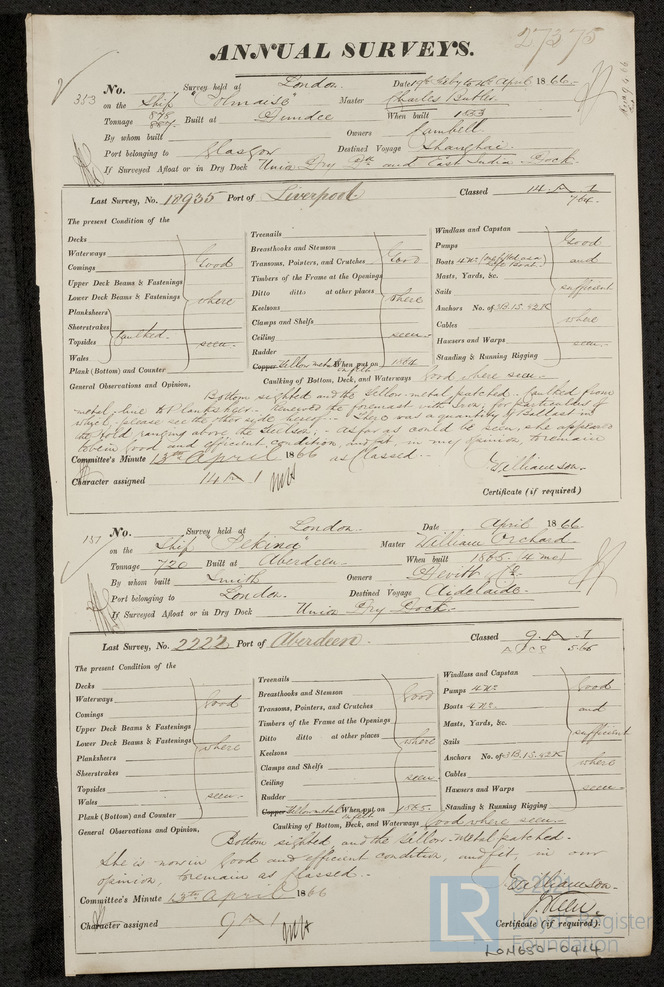 27375
ANNUAL SURVEYS.
353 No. Survey held at London. Date April 1866.
on the Ship "Colmaise" Master Charles Butler
Tonnage 878 Built at Dundee When built 1853
By whom built Owners Cambell
Port belonging to Glasgow Destined Voyage Shanghai.
If Surveyed Afloat or in Dry Dock Union Dry Dk and East India Dock.
Last Survey, No. 18935 Port of Liverpool Classed 14 A 1
7/64.
The present Condition of the
Decks
Waterways
Comings
Upper Deck Beams & Fastenings
Lower Deck Beams & Fastenings
Plansheers
Sheerstrakes
Topsides Caulked.
Wales
Plank (Bottom) and Counter
Good
where
seen.
Treenails
Breasthooks and Stemson
Transoms, Pointers, and Crutches
Timbers of the Frame at the Openings
Ditto ditto at other places
Keelsons
Clamps and Shelfs
Ceiling
Rudder
Copper Yellow metal When put on 1864
on felt
Good
where
seen.
Windlass and Capstan
Pumps
Boats 4 No.
Masts, Yards, &c.
Sails
Anchors No. of 3B.1S.&2K
Cables
Hawsers and Warps
Standing & Running Rigging
Good
and
sufficient
where
seen.
Caulking of Bottom, Deck, and Waterways Good where seen.
General Observations and Opinion, Bottom sighted and the Yellow-metal patched. Caulked from
metal-line to Planksheer. Renewed the foremast with Iron, for particulars of
which, please see the other side hereof. There was a quantity of Ballast in
the hold ranging above the Keelson, as far as could be seen, she appears
to be in good and efficient condition, and fit, in my opinion, to remain
Committee's Minute 13th April 1866 as Classed.
Williamson.
Character assigned 14 A 1
Certificate (if required)
157 No. Survey held at London. Date April 1866.
on the Ship "Pekina" Master William Orchard.
Tonnage 720 Built at Aberdeen. When built 1865. (4 mo)
By whom built Smith Owners Hevitt & Co.
Port belonging to London. Destined Voyage Aidelaide.
If Surveyed Afloat or in Dry Dock Union Dry Dock.
Last Survey, No. 2222 Port of Aberdeen. Classed 9. A. 1
5.65
The present Condition of the
Decks
Waterways
Comings
Upper Deck Beams & Fastenings
Lower Deck Beams & Fastenings
Planksheers
Sheerstrakes
Topsides
Wales
Plank (Bottom) and Counter
Good
where
seen.
Treenails
Breasthooks and Stemson
Transoms, Pointers, and Crutches
Timbers of the Frame at the Openings
Ditto ditto at other places
Keelsons
Clamps and Shelfs
Ceiling
Rudder
Copper Yellow metal When put on 1865.
on felt
Good
where
seen.
Windlass and Capstan
Pumps 4 No.
Boats 4 No.
Masts, Yards, &c.
Sails
Anchors No. of 3B.1S.&2K
Cables
Hawsers and Warps
Standing & Running Rigging
Good
and
sufficient
where
seen.
Caulking of Bottom, Deck, and Waterways Good where seen.
General Observations and Opinion, Bottom sighted, and the Yellow-Metal patched.
She is now in good and efficient condition, and fit, in our
opinion, to remain as Classed.
Committee's Minute 13th April 1866
Williamson.
Character assigned 9 A 1
Certificate (if required).
LR
© 2021
Lloyd's Register
Foundation
LON650-0414